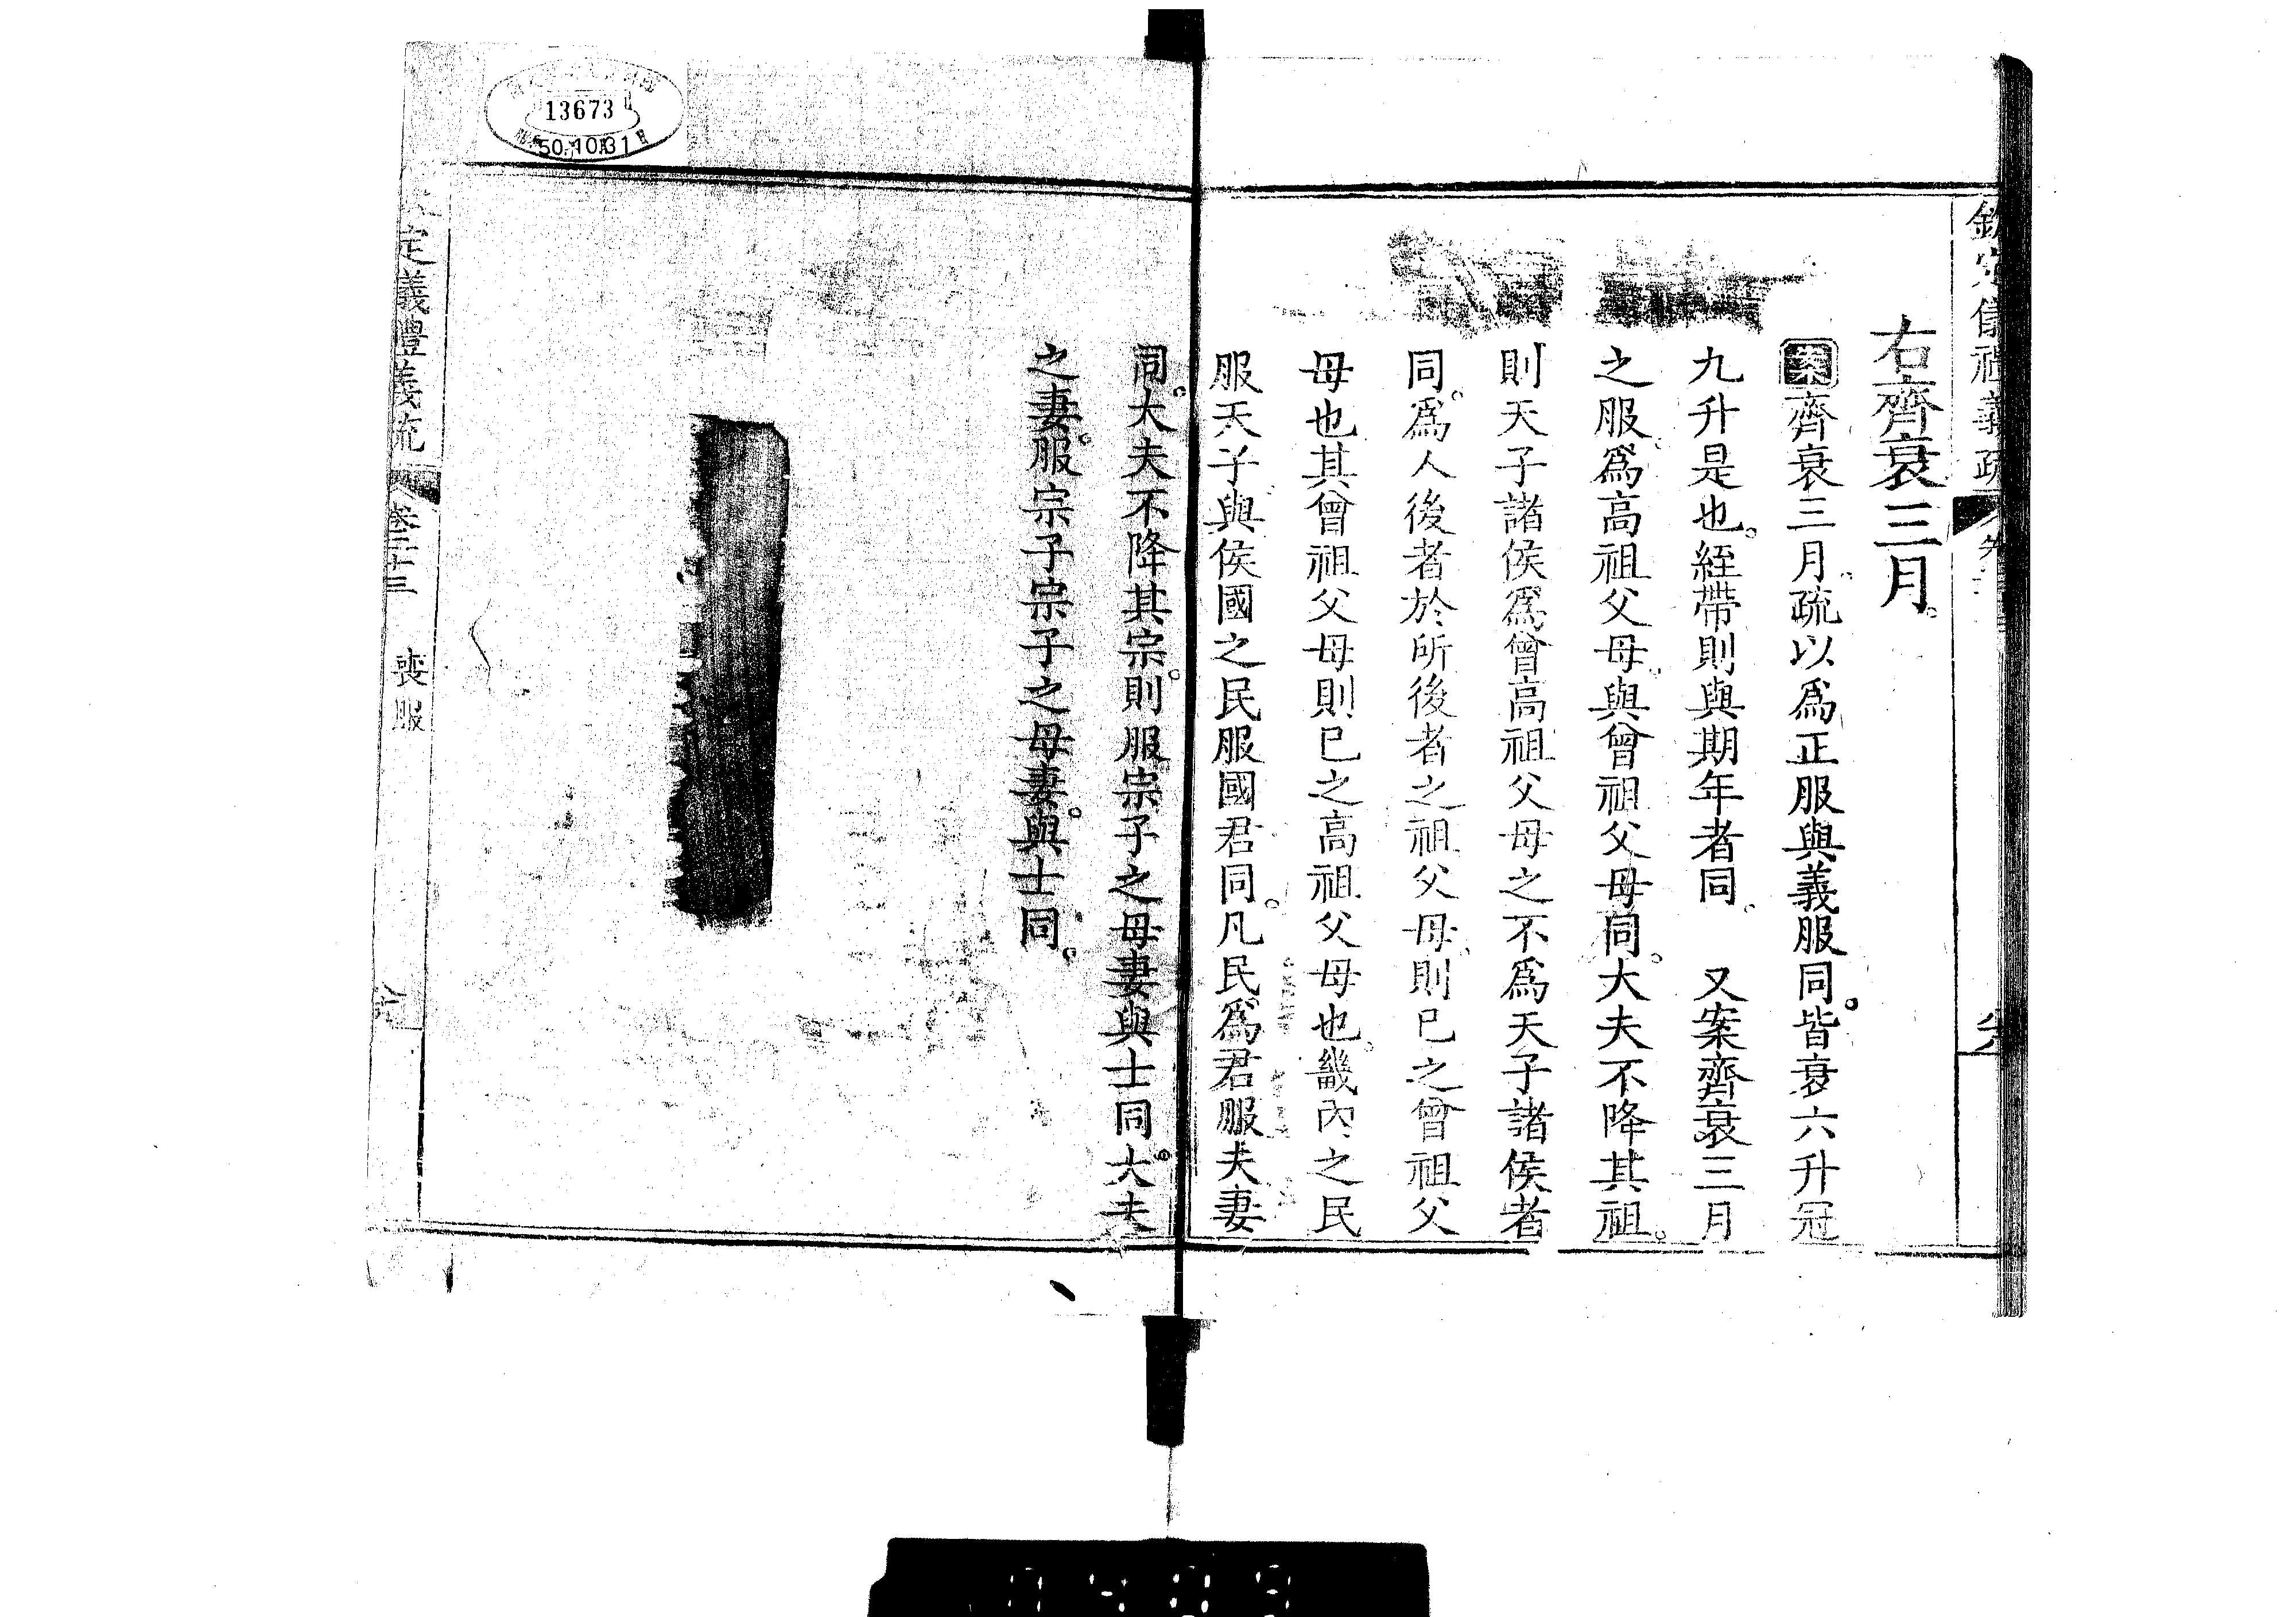 右齊衰三月。
案齊衰三月。疏以爲正服與義服同。皆衰六升冠
九升是也。絰帶則與期年者同。 又案齊衰三月
之服。爲高祖父母。與曾祖父母同。大夫不降其祖。
則天子諸侯爲曾高祖父母之不爲天子諸侯者
同。爲人後者於所後者之祖父母則已之曾祖父
母也其曾祖父母則已之高祖父母也。畿內之民
服天子與侯國之民服國君同。凡民爲君服夫妻
同。大夫不降其宗。則服宗子之母妻與士同。大夫
之妻。服宗子宗子之母妻。與士同。
定義禮義疏 卷二十三 喪服
13673
50.10.31